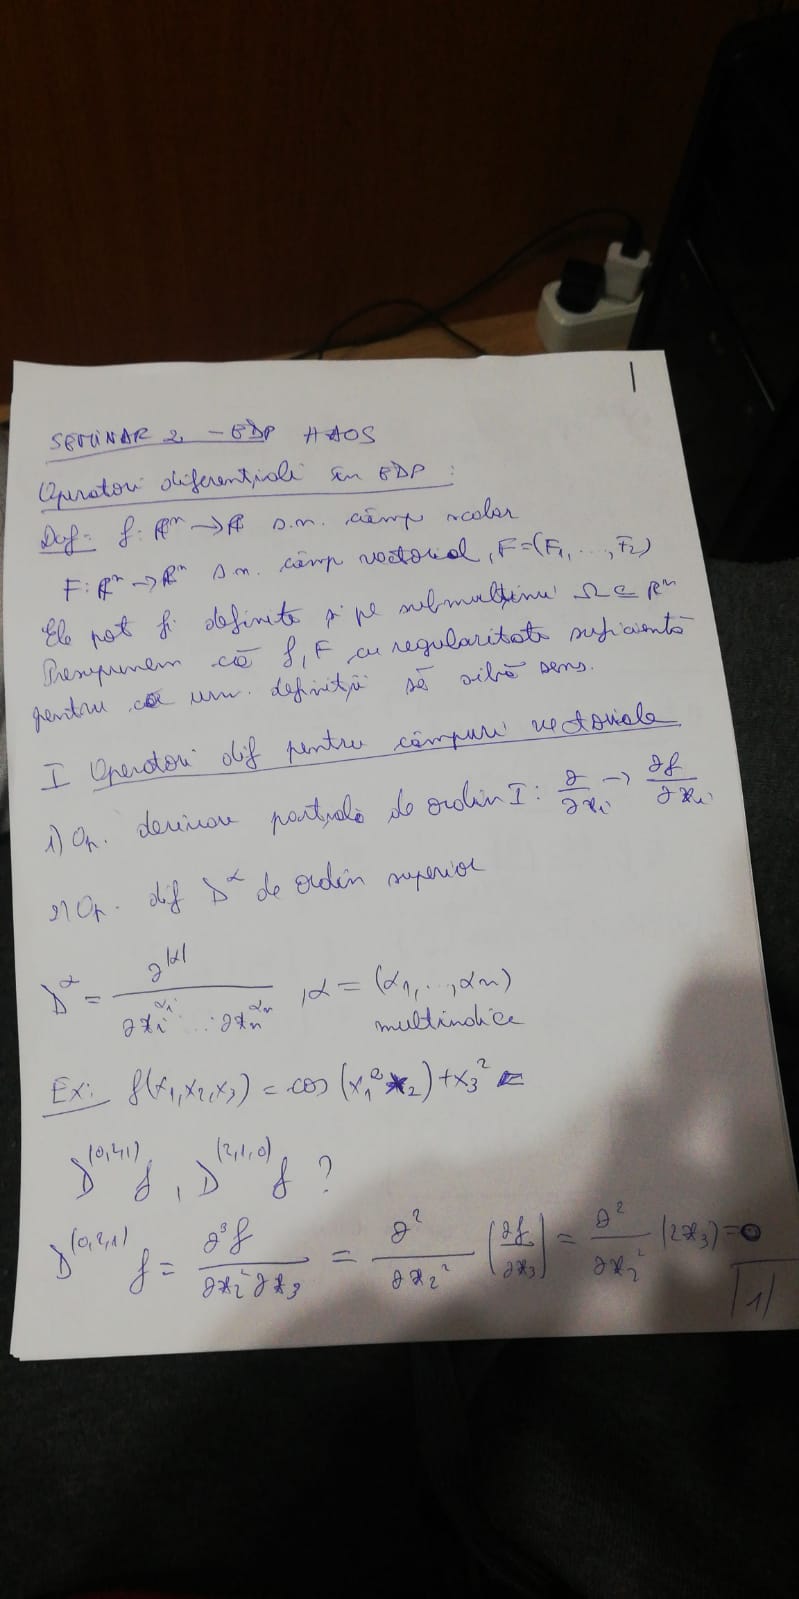 1
SEMINAR 2 – EDP HAOS
Operatori diferențiali în EDP:
Def: f: ℝⁿ → ℝ s.n. câmp scalar
F: ℝⁿ → ℝⁿ s.n. câmp vectorial, F=(F₁, ..., F₂)
Ele pot fi definite și pe submulțimi Ω ⊆ ℝⁿ
Presupunem că f, F au regularitate suficientă
pentru ca urm. definiții să aibă sens.
I Operatori dif pentru câmpuri vectoriale
1) Op. derivare parțială de ordin I: ∂/∂xᵢ → ∂f/∂xᵢ
2) Op. dif D^α de ordin superior
D^α = ∂^|α| / ∂xᵢ^αᵢ ... ∂xₙ^αₙ , α = (α₁, ..., αn)
multiindice
Ex: f(x₁,x₂,x₃) = cos (x₁² x₂) + x₃²
D^(0,2,1) f, D^(2,1,0) f ?
D^(0,2,1) f = ∂³f / ∂x₂² ∂x₃ = ∂² / ∂x₂² (∂f/∂x₃) = ∂² / ∂x₂² (2x₃) = 0
|1|